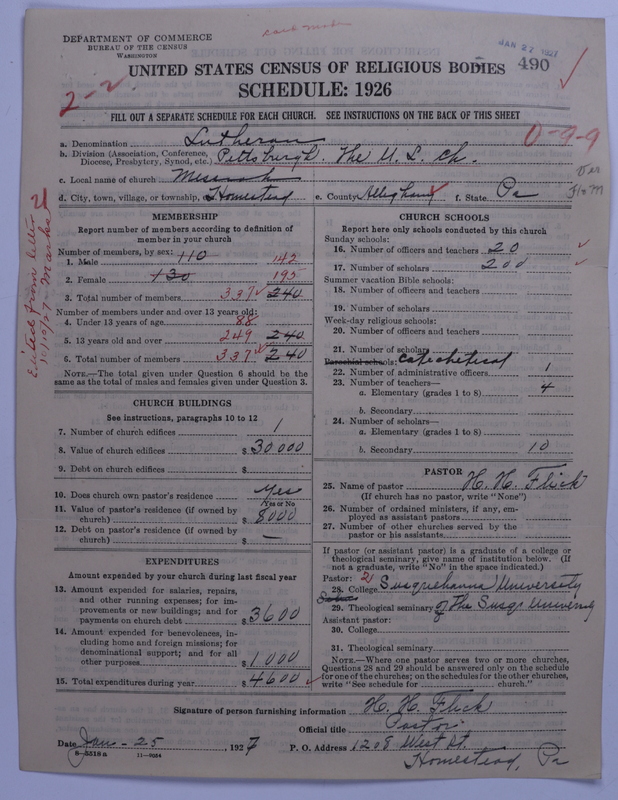 card made
DEPARTMENT OF COMMERCE
BUREAU OF THE CENSUS
WASHINGTON
JAN 27 1927
490
UNITED STATES CENSUS OF RELIGIOUS BODIES
SCHEDULE: 1926
2-2
FILL OUT A SEPARATE SCHEDULE FOR EACH CHURCH. SEE INSTRUCTIONS ON THE BACK OF THIS SHEET
0-9-9
a. Denomination Lutheran
b. Division (Association, Conference, Diocese, Presbytery, Synod, etc.) Pittsburgh. The U. L. Ch.
c. Local name of church Messiah
d. City, town, village, or township, Homestead e. County Allegheny f. State Pa
MEMBERSHIP
Report number of members according to definition of member in your church
Number of members, by sex: 110
1. Male 142
2. Female 130 195
3. Total number of members 337 240
Number of members under and over 13 years old:
4. Under 13 years of age 88
5. 13 years old and over 249 240
6. Total number of members 337 240
NOTE.—The total given under Question 6 should be the same as the total of males and females given under Question 3.
CHURCH BUILDINGS
See instructions, paragraphs 10 to 12
7. Number of church edifices 1
8. Value of church edifices $ 30000
9. Debt on church edifices $
10. Does church own pastor's residence Yes
Yes or No
11. Value of pastor's residence (if owned by church) $ 8000
12. Debt on pastor's residence (if owned by church) $ —
EXPENDITURES
Amount expended by your church during last fiscal year
13. Amount expended for salaries, repairs, and other running expenses; for improvements or new buildings; and for payments on church debt $ 3600
14. Amount expended for benevolences, including home and foreign missions; for denominational support; and for all other purposes $ 1000
15. Total expenditures during year $ 4600
CHURCH SCHOOLS
Report here only schools conducted by this church
Sunday schools:
16. Number of officers and teachers 20
17. Number of scholars 200
Summer vacation Bible schools:
18. Number of officers and teachers
19. Number of scholars
Week-day religious schools:
20. Number of officers and teachers
21. Number of scholars
Parochial schools: Catechetical
22. Number of administrative officers 1
23. Number of teachers—
a. Elementary (grades 1 to 8) 4
b. Secondary
24. Number of scholars—
a. Elementary (grades 1 to 8)
b. Secondary 10
PASTOR
25. Name of pastor H. H. Flick
(If church has no pastor, write "None")
26. Number of ordained ministers, if any, employed as assistant pastors
27. Number of other churches served by the pastor or his assistants
If pastor (or assistant pastor) is a graduate of a college or theological seminary, give name of institution below. (If not a graduate, write "No" in the space indicated.)
Pastor: 2
28. College Susquehanna University
29. Theological seminary of The Susq. University
Assistant pastor:
30. College
31. Theological seminary
NOTE.—Where one pastor serves two or more churches, Questions 28 and 29 should be answered only on the schedule for one of the churches; on the schedules for the other churches, write "See schedule for church."
Signature of person furnishing information H. H. Flick
Official title Pastor
Date Jan - 25 1927 P. O. Address 1208 West St.
8—5518a 11—9034
Homestead, Pa